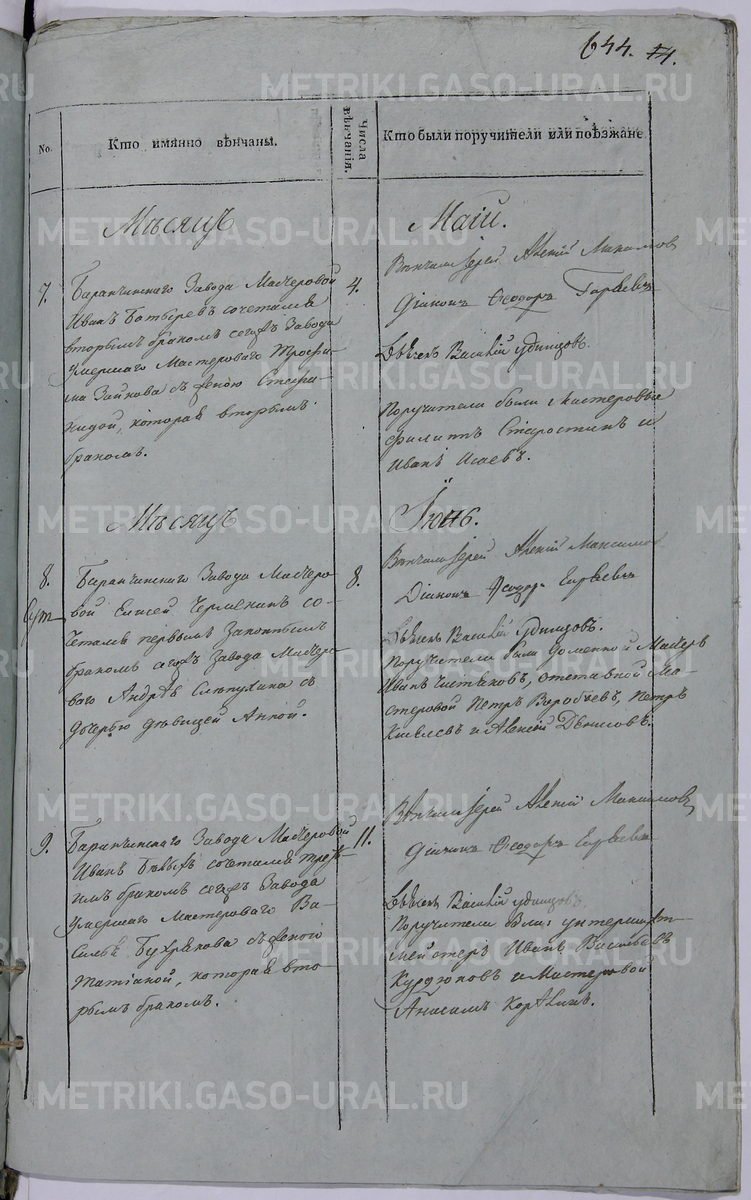 644. 14.
No.
Кто имянно вѣнчаны.
Числа вѣнчанія.
Кто были поручители или поѣзжане
Мѣсяцъ
Маій.
7.
Баранчинскаго Завода Мастеровой
Иванъ сочетался
вторымъ бракомъ сегожъ Завода
умершаго Мастероваго Трофи-
ма Зайкова съ женою Степа-
нидой, которая вторымъ
бракомъ.
4.
Вѣнчалъ Іерей Алексій Максимовъ
Діаконъ Ѳеодоръ
Дьячекъ Василій Удинцовъ.
Поручители были Мастеровые
Филиппъ Старостинъ и
Иванъ Исаевъ.
Мѣсяцъ
Іюнь.
8.
Баранчинскаго Завода Мастеро-
вой Елисей со-
четался первымъ законнымъ
бракомъ сегожъ Завода Мастеро-
ваго Андрея Слепухина съ
дочерью дѣвицей Анной.
8.
Вѣнчалъ Іерей Алексій Максимовъ
Діаконъ Ѳеодоръ
Дьячекъ Василій Удинцовъ.
Поручители были доменной Мастеръ
Иванъ Чистяковъ, отставной Ма-
стеровой Петръ Воробьевъ, Петръ
Киселевъ и Алексій Денисовъ.
9.
Баранчинскаго Завода Мастеровой
Иванъ Бѣлыхъ сочетался треть-
имъ бракомъ сегожъ Завода
умершаго Мастероваго Ва-
силья съ женою
Татіаной, которая вто-
рымъ бракомъ.
11.
Вѣнчалъ Іерей Алексій Максимовъ
Діаконъ Ѳеодоръ
Дьячекъ Василій Удинцовъ.
Поручители были унтершихт-
мейстеръ Иванъ Васильевъ
Курдюковъ и Мастеровой
METRIKI.GASO-URAL.RU